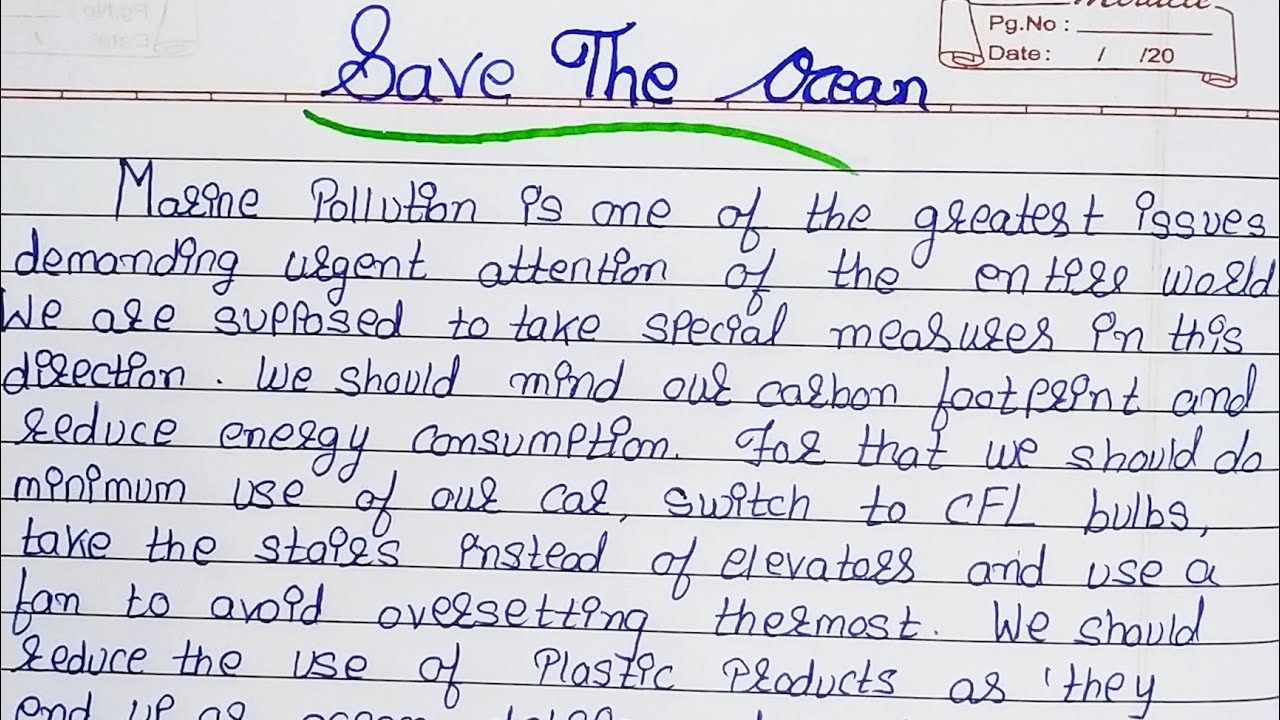 Pg.No :
Date: / /20
Save The Ocean
Marine Pollution is one of the greatest issues
demanding urgent attention of the entire world
We are supposed to take special measures in this
direction. We should mind our carbon footprint and
reduce energy consumption. For that we should do
minimum use of our car, switch to CFL bulbs,
take the stairs instead of elevators and use a
fan to avoid oversetting thermost. We should
reduce the use of Plastic Products as they
end up as ocean